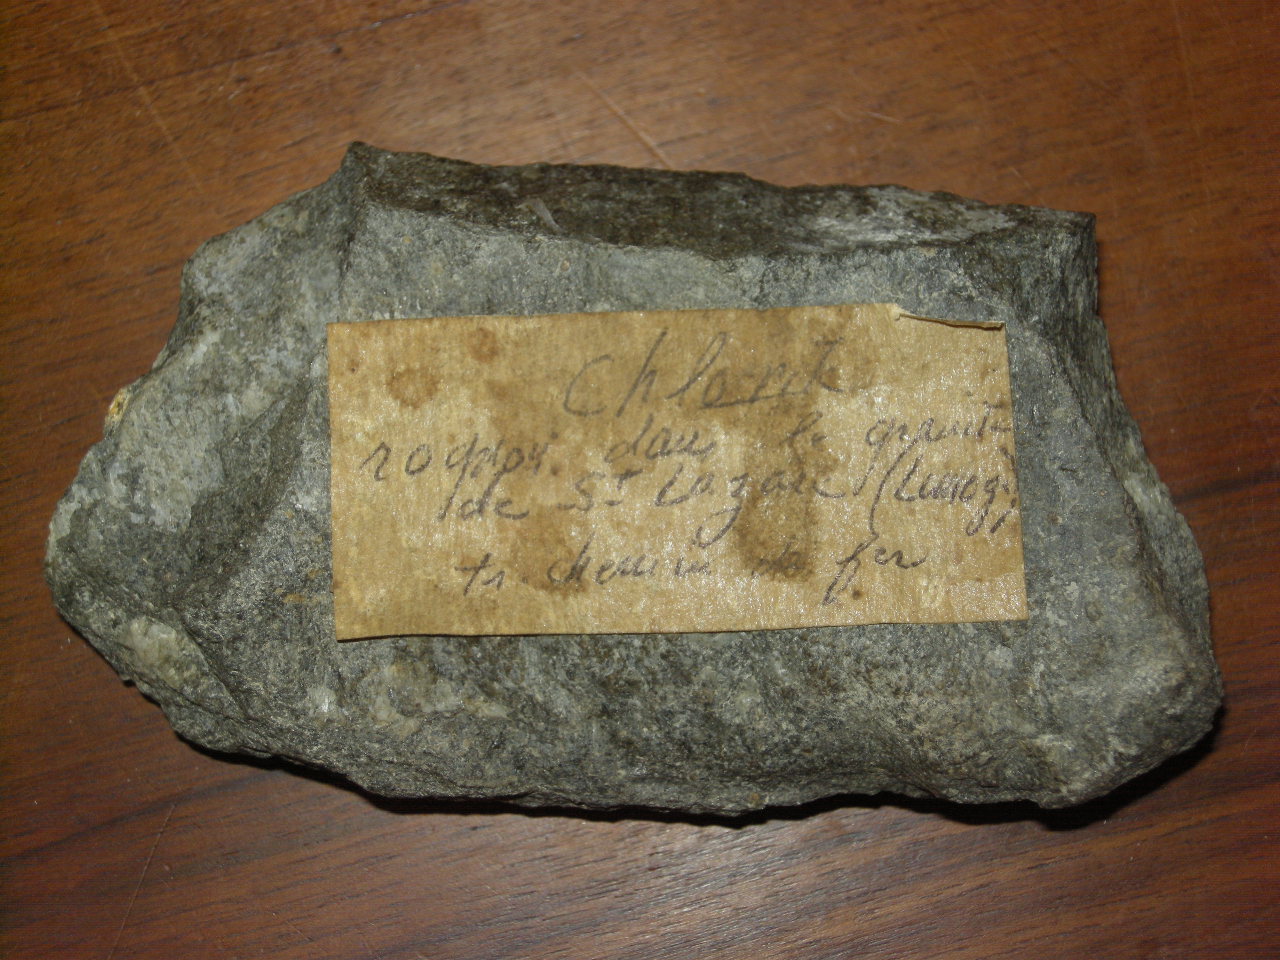 Chlorite
dans le granite
de St Lazare (Limoges)
tr. chemin de fer